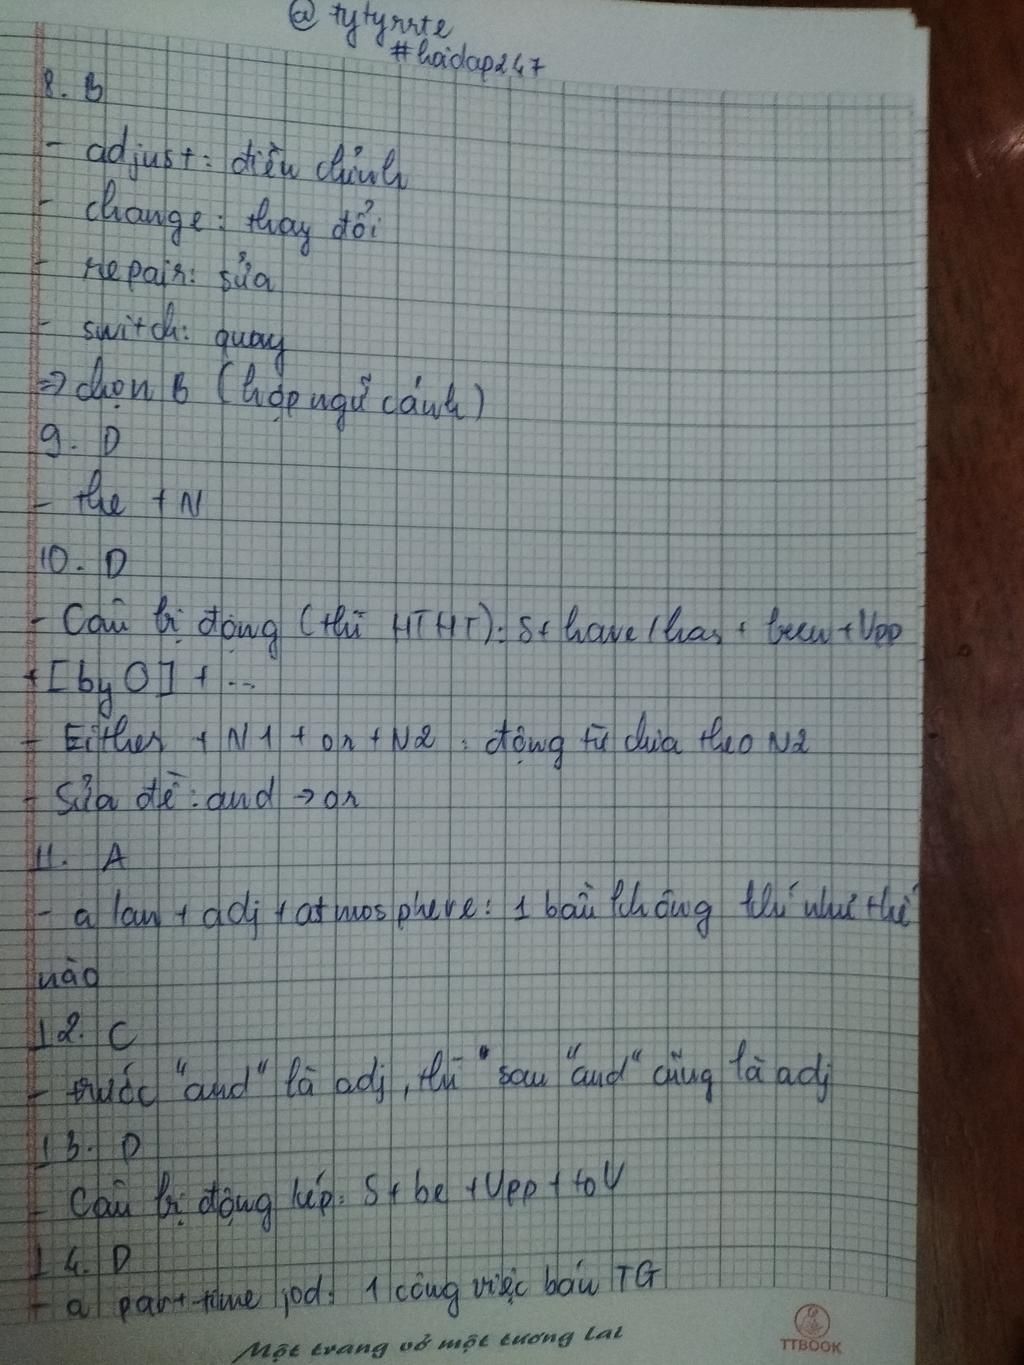 @ tytyrrte
#hoidap247
8. B
- adjust: điều chỉnh
- change: thay đổi
- repair: sửa
- switch: quay
=> chọn B (hợp ngữ cảnh)
9. D
- the + N
10. D
- Câu bị động (thì HTHT): S + have/has + been + Vpp
+ [by O] + ...
- Either + N1 + or + N2 : động từ chia theo N2
- Sửa đề: and → or
11. A
- a lan + adj + atmosphere: 1 bầu không khí như thế
nào
12. C
- trước "and" là adj, thì sau "and" cũng là adj
13. D
- Câu bị động kép: S + be + Vpp + to V
14. D
- a part-time jod: 1 công việc bán TG
Một trang vở một tương lai
TTBOOK